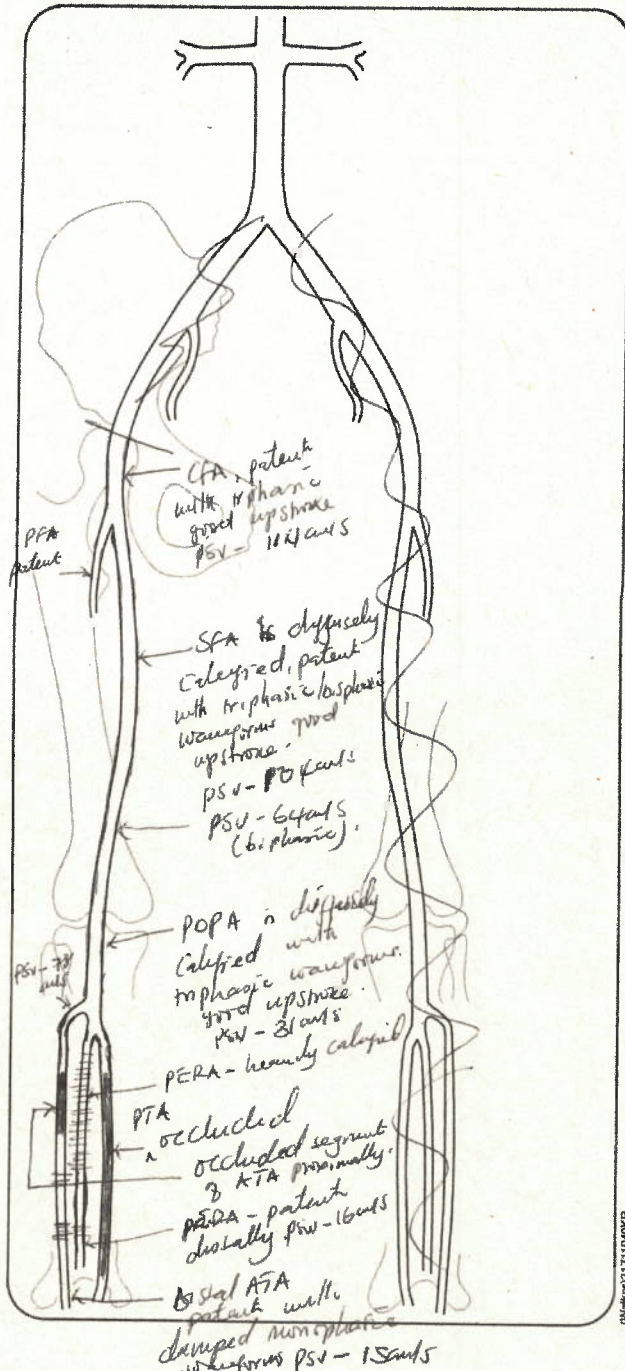 CFA, patent
with triphasic
good upstroke
PSV -
PFA
patent
SFA is diffusely
Calcyied, patent
with triphasic/biphasic
waveforms good
upstroke.
PSV -
PSV - 64cm/s
(biphasic).
POPA is diffusely
Calcyied with
triphasic waveforms.
good upstroke.
PSV - 31cm/s
PSV - 73
cm/s
PERA - heavily calcyied
PTA
occluded
occluded segment
of ATA proximally.
PERA - patent
distally PSV - 16cm/s
Distal ATA
patent with
damped monophasic
waveforms PSV - 15cm/s